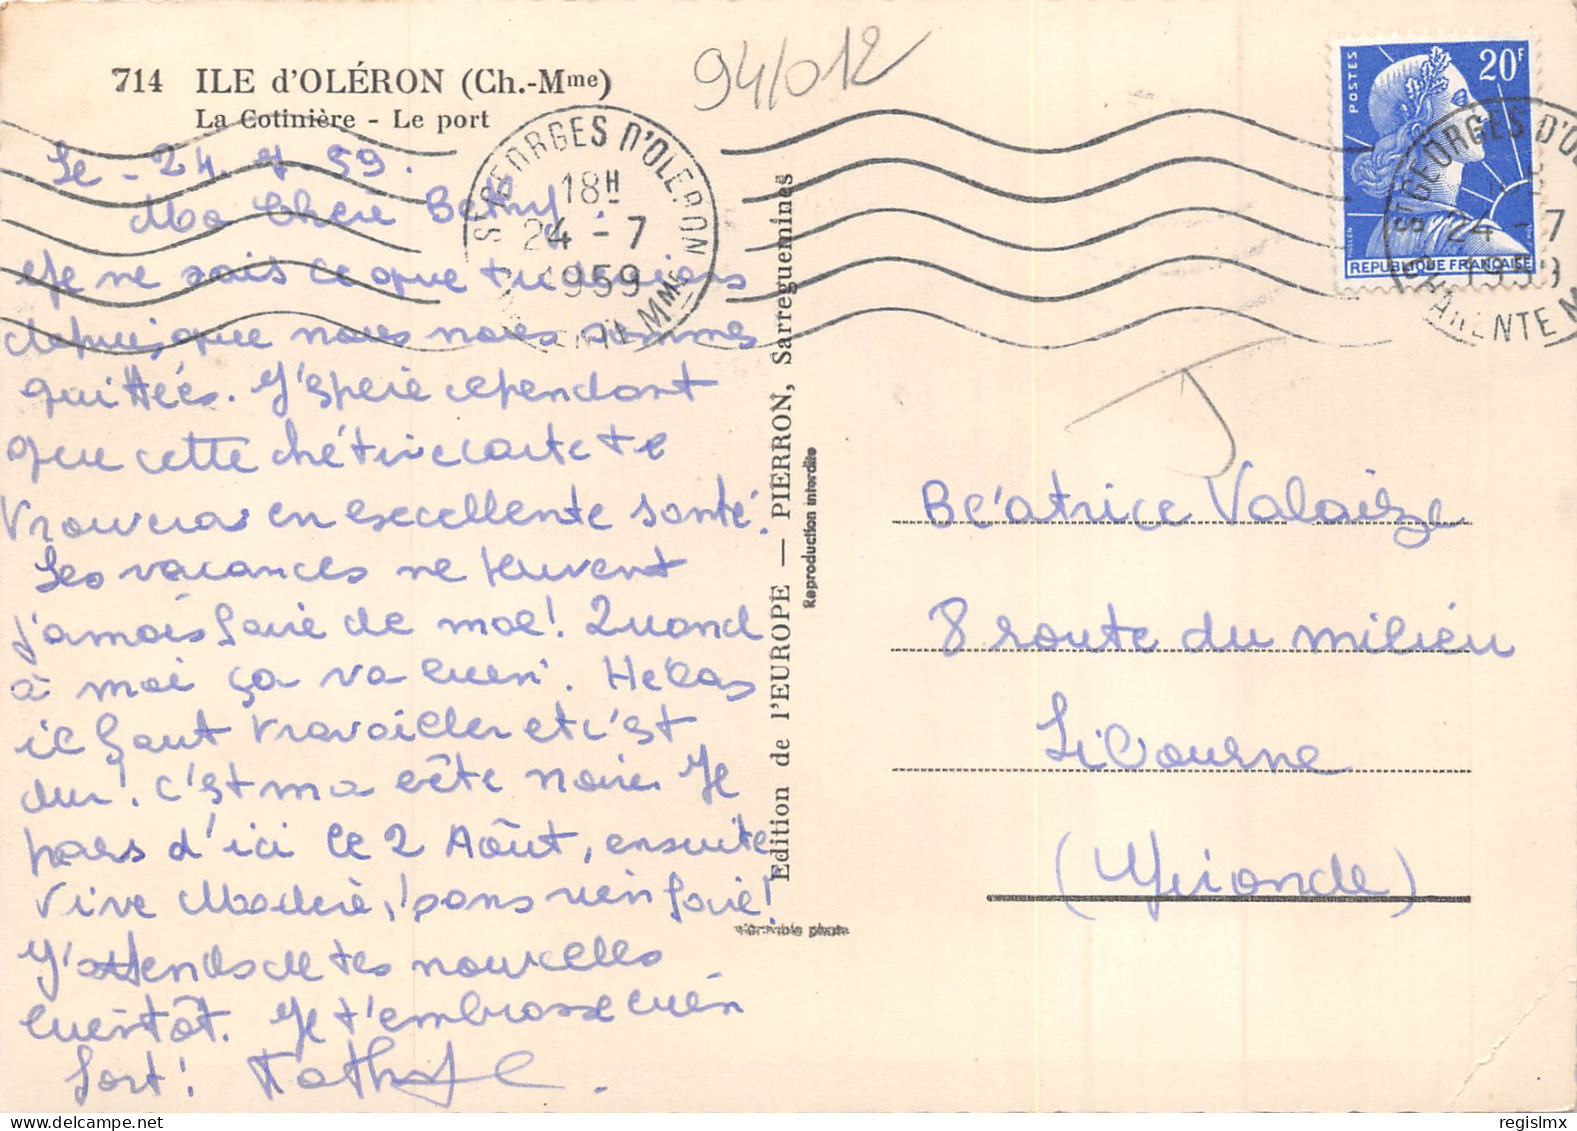 714 ILE d'OLÉRON (Ch.-Mme)
La Cotinière - Le port
94/012
Le - 24. 7 59.
Ma Chère Bethy.
Je ne sais ce que tu deviens
depuis que nous nous sommes
quittées. J'espère cependant
que cette chétive carte te
trouvera en excellente santé.
Les vacances ne peuvent
jamais faire de mal! Quand
à moi ça va bien. Hélas
il faut travailler et c'est
dur! C'est ma bête noire. Je
pars d'ici le 2 Août, ensuite
Vive Madère, sans rien faire!
J'attends de tes nouvelles
bientôt. Je t'embrasse bien
fort!
ST GEORGES D'OLERON
18H
24 - 7
1959
Edition de l'EUROPE — PIERRON, Sarreguemines
Reproduction interdite
véritable photo
POSTES
20F
REPUBLIQUE FRANÇAISE
ST GEORGES D'OL
24 - 7
1959
CHARENTE M
Béatrice Valaize
8 route du milieu
Libourne
(Gironde)
delcampe.net
regislmx